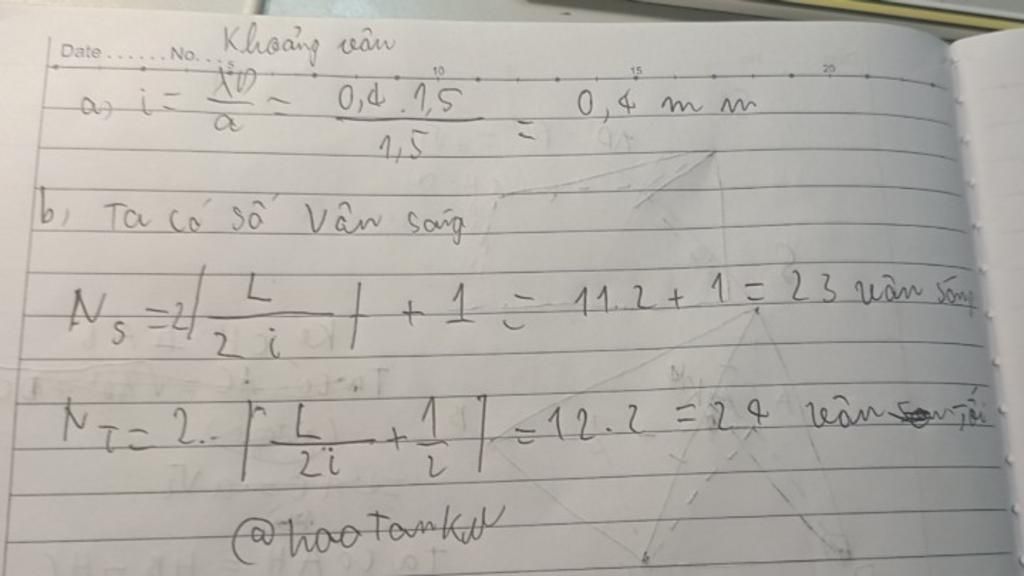 Date ...... No. .. Khoảng vân
5 10 15 20
a, i = λD/a = 0,4.1,5/1,5 = 0,4 mm
b, Ta có số Vân sáng
N_S = 2|L/2i| + 1 = 11.2 + 1 = 23 vân sáng
N_T = 2.[L/2i + 1/2] = 12.2 = 24 vân Tối
@haoTankW